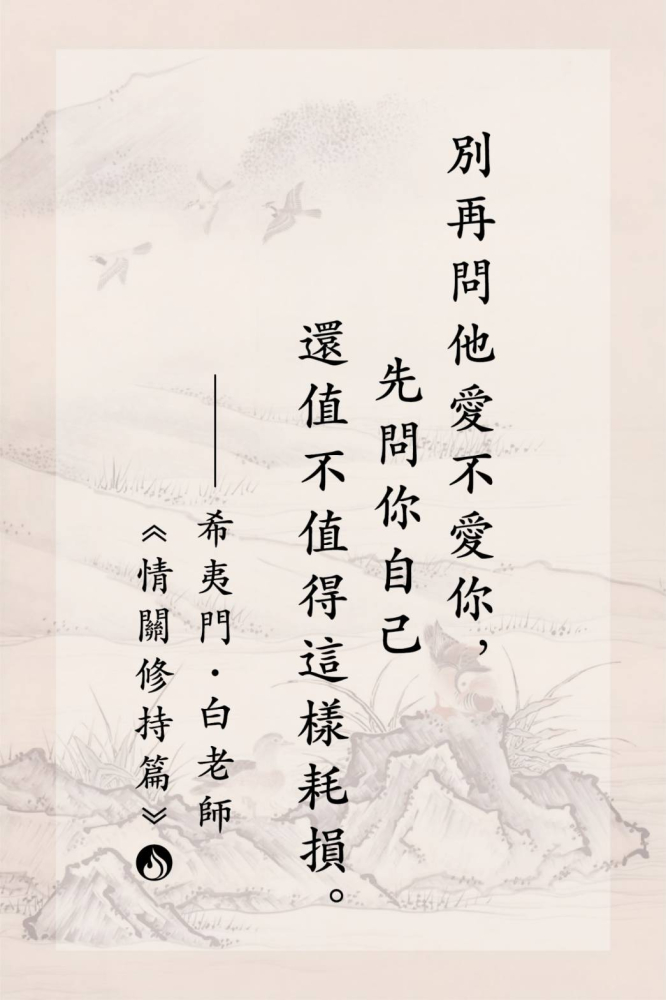 別再問他愛不愛你，
先問你自己
還值不值得這樣耗損。
——希夷門·白老師
《情關修持篇》